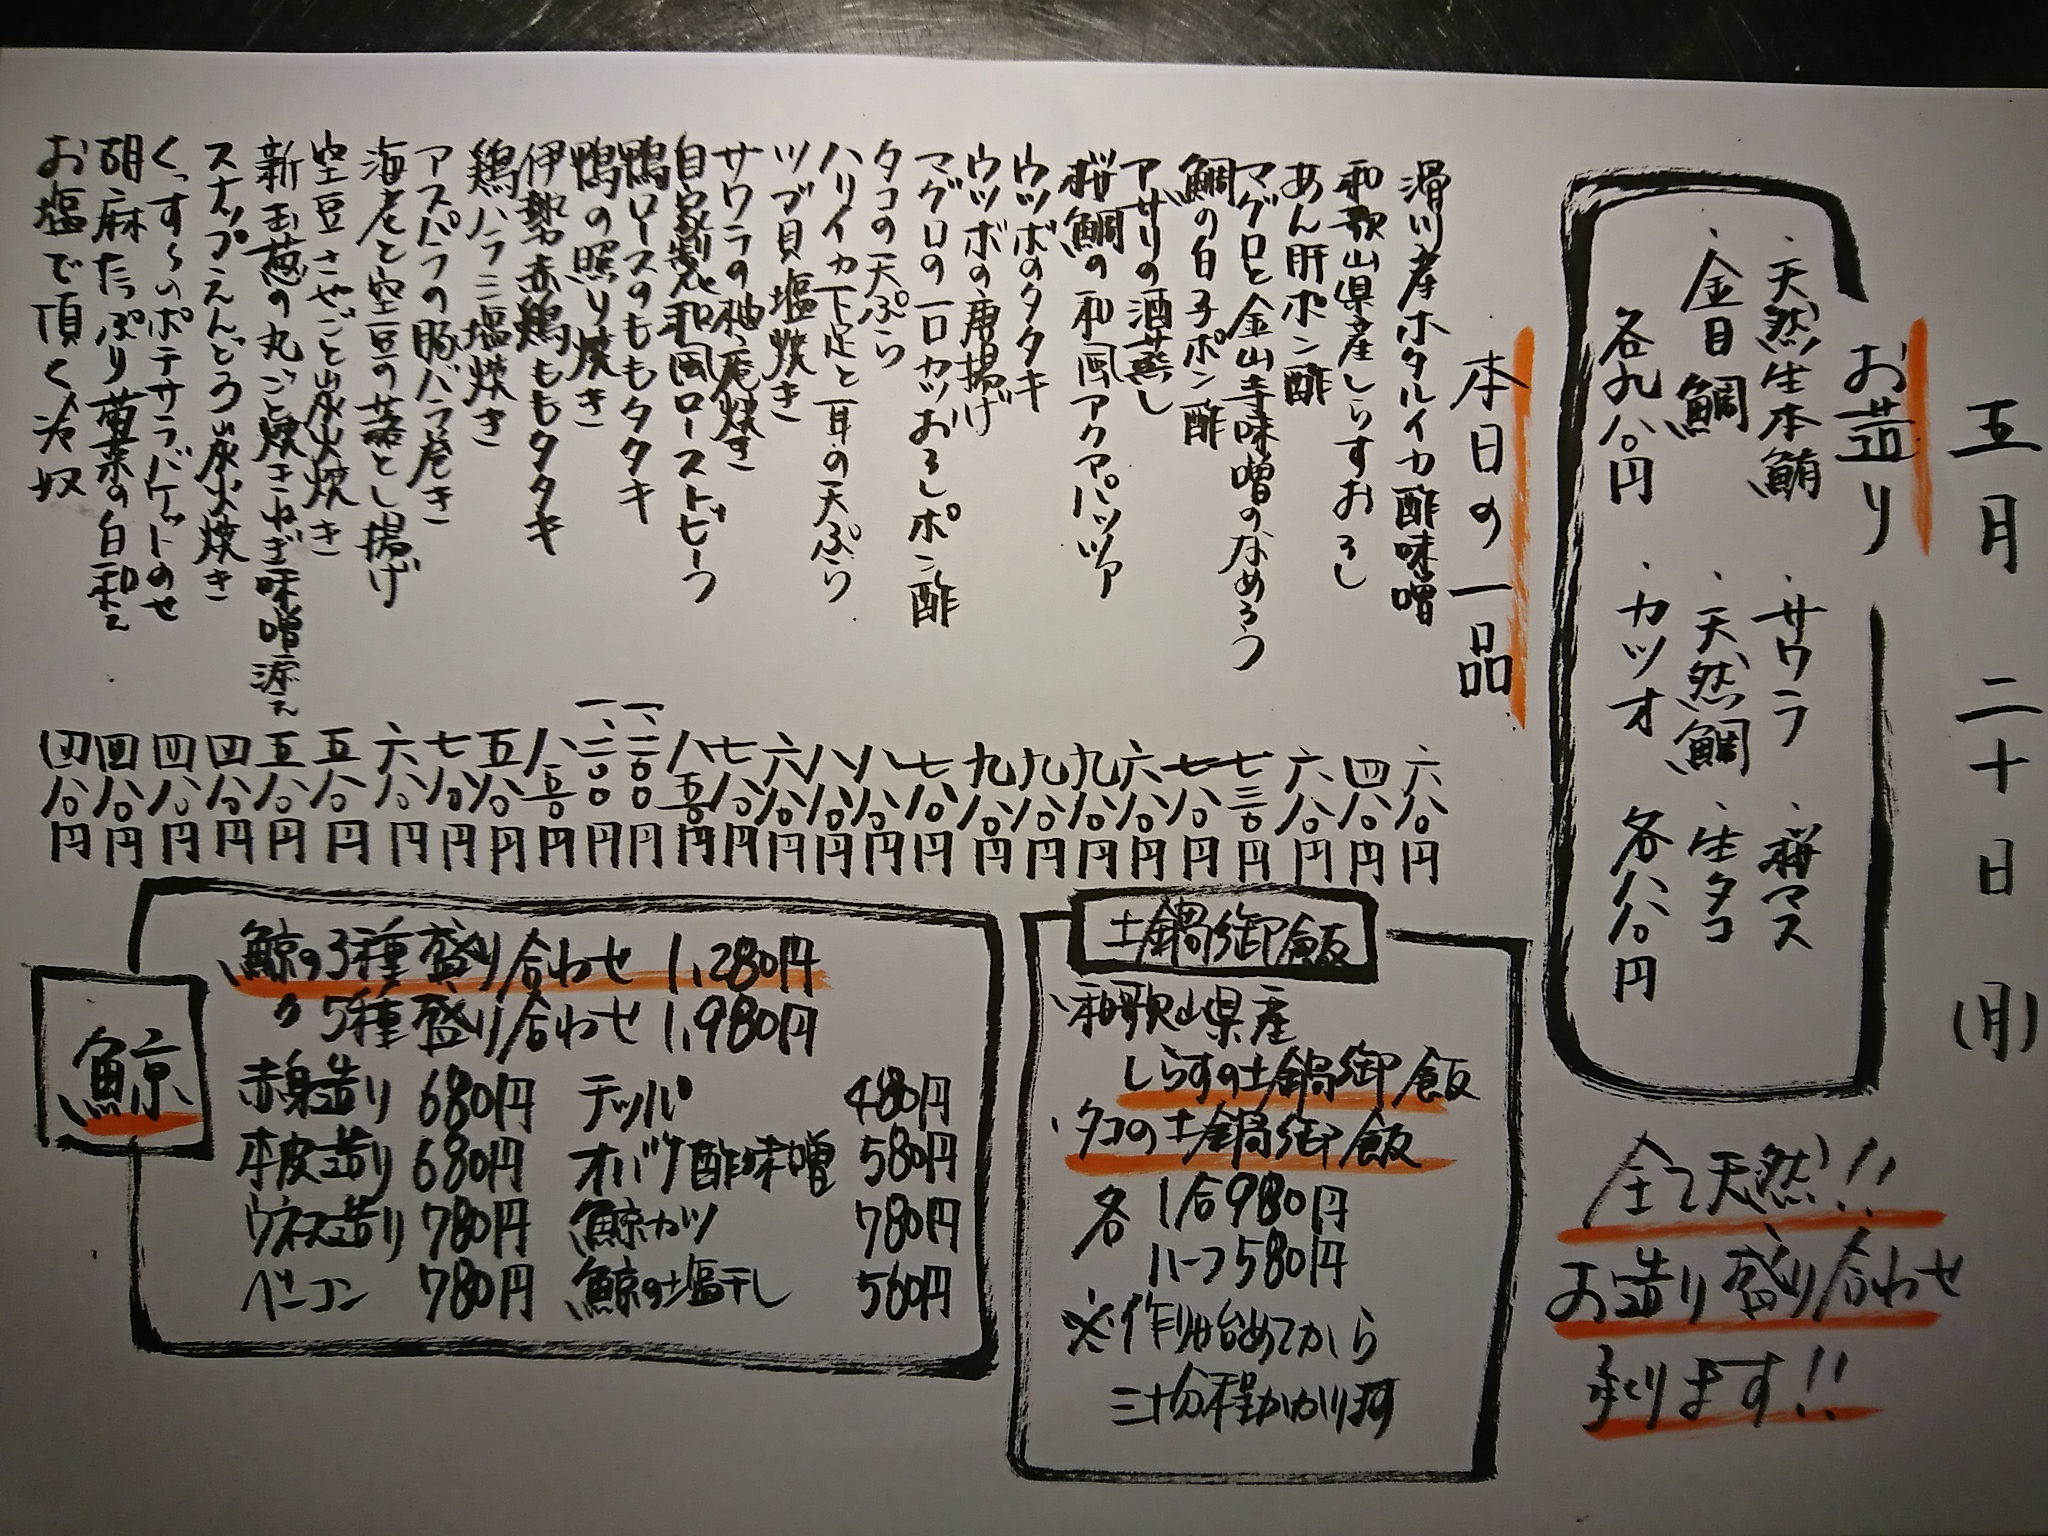 五月 二十日 (月)
お造り
・天然生本鮪
・金目鯛
各九八〇円
・サワラ ・桜マス
・天然鯛 ・生タコ
・カツオ 各八八〇円
全て天然!!
お造り盛り合わせ
承ります!!
本日の一品
滑川産ホタルイカ酢味噌 六八〇円
和歌山県産しらすおろし 四八〇円
あん肝ポン酢 六八〇円
マグロと金山寺味噌のなめろう 七三〇円
鯛の白子ポン酢 七八〇円
アサリの酒蒸し 六八〇円
桜鯛の和風アクアパッツァ 九八〇円
ウツボのタタキ 九八〇円
ウツボの唐揚げ 九八〇円
マグロの一口カツおろしポン酢 七八〇円
タコの天ぷら 八八〇円
ハリイカ下足と耳の天ぷら 八八〇円
ツブ貝塩焼き 六八〇円
サワラの柚庵焼き 七八〇円
自家製和風ローストビーフ 八五〇円
鴨ロースのももタタキ 一、二〇〇円
鴨の照り焼き 一、二〇〇円
伊勢赤鶏ももタタキ 八五〇円
鶏ハラミ塩焼き 五八〇円
アスパラの豚バラ巻き 七八〇円
海老と空豆の落とし揚げ 六八〇円
空豆さやごと炭火焼き 五八〇円
新玉葱の丸ごと焼きねぎ味噌添え 五八〇円
スナップえんどう炭火焼き 四八〇円
くっす〜いポテサラバゲットのせ 四八〇円
胡麻たっぷり菊菜の白和え 四八〇円
お塩で頂く冷奴 四八〇円
土鍋御飯
・和歌山県産
しらすの土鍋御飯
・タコの土鍋御飯
各 1合980円
ハーフ580円
※作り始めてから
三十分程かかります
鯨
鯨の3種盛り合わせ 1,280円
〃 5種盛り合わせ 1,980円
赤身造り 680円 テッパ 480円
本皮造り 680円 オバケ酢味噌 580円
ウネス造り 780円 鯨カツ 780円
ベーコン 780円 鯨の塩干し 560円